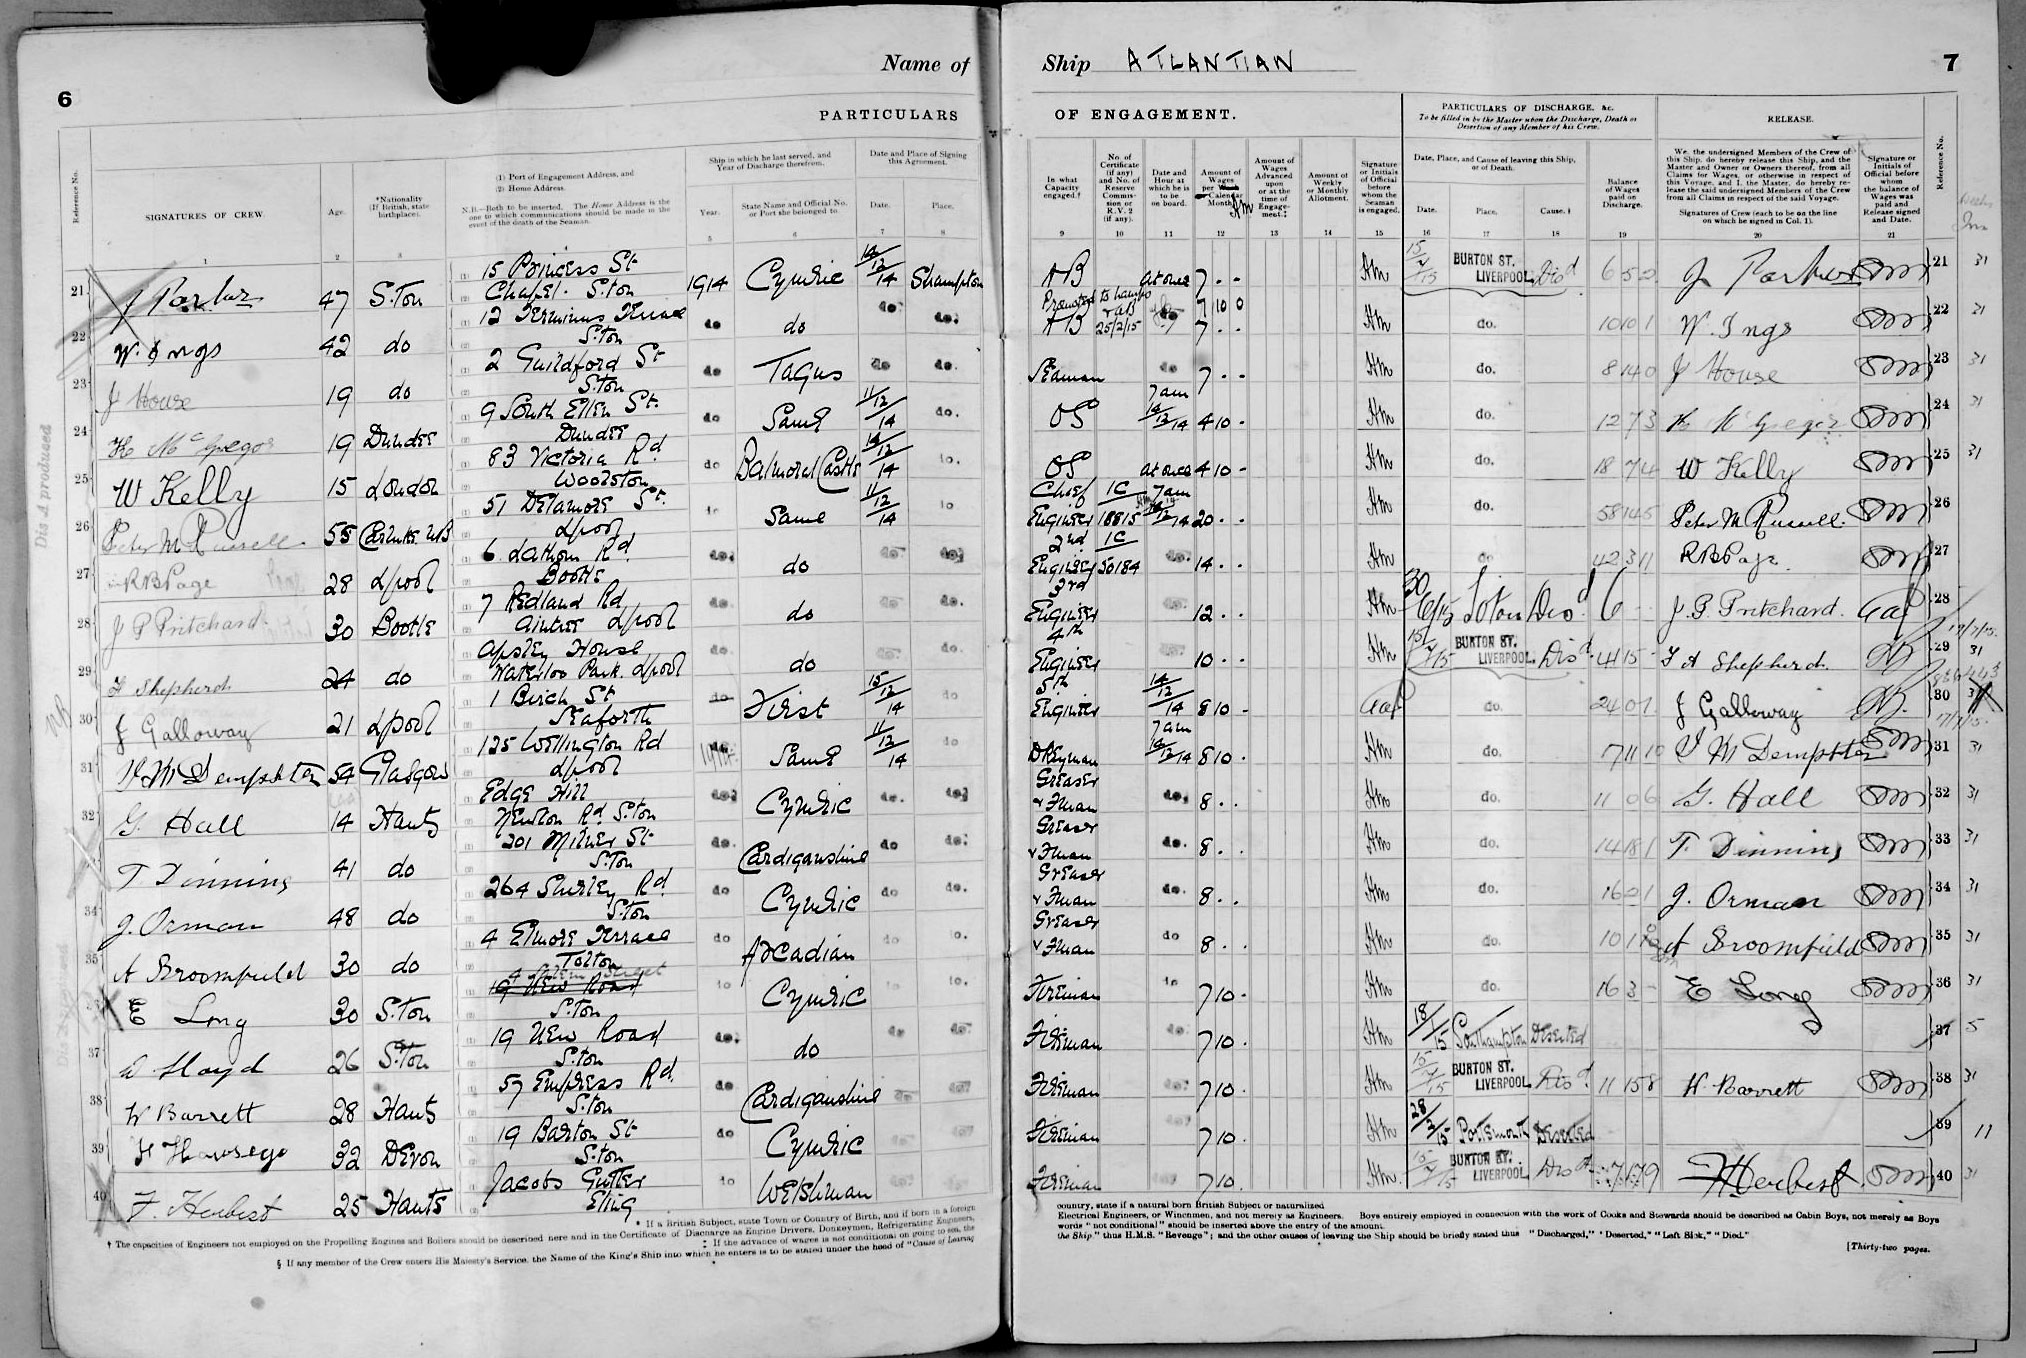 6
Name of
PARTICULARS
Reference No.
SIGNATURES OF CREW.
Age.
*Nationality
(If British, state
birthplace).
(1) Port of Engagement Address, and
(2) Home Address.
N.B.—Both to be inserted. The Home Address is the
one to which communications should be made in the
event of the death of the Seaman.
Ship in which he last served, and
Year of Discharge therefrom.
Year.
State Name and Official No.
or Port she belonged to.
Date and Place of Signing
this Agreement.
Date.
Place.
1 2 3 5 6 7 8
21 J Parker 47 S.Ton 15 Princess St Chapel. S.ton 1914 Cymric 14/12/14 S'hampton
22 W. Ings 42 do 12 Terminus Terrace S.ton do do do do.
23 J House 19 do 2 Guildford St S.ton do Tagus do do.
24 H McGregor 19 Dundee 9 South Ellen St. Dundee do Same 11/12/14 do.
25 W Kelly 15 London 83 Victoria Rd Woolston do Balmoral Castle 14/12/14 do.
26 Peter M Russell 55 51 Delamore St. Lpool do Same 11/12/14 do
27 R B Page 28 Lpool 6. Latham Rd Bootle do. do do do.
28 J P Pritchard 30 Bootle 7 Redland Rd Aintree Lpool do. do do do.
29 F Shepherd 24 do Apsley House Waterloo Park. Lpool do. do do do.
30 J Galloway 21 Lpool 1 Birch St Seaforth do First 15/12/14 do
31 Dempster 54 Glasgow 125 Wellington Rd Lpool 1914 Same 11/12/14 do
32 G. Hall 14 Hants Edge Hill Newton Rd S.ton do. Cymric do. do.
33 T. Dinning 41 do 301 Milner St S.Ton do. Cardiganshire do do.
34 J. Orman 48 do 264 Shirley Rd S.ton do Cymric do do.
35 A Broomfield 30 do 4 Elmore Terrace Totton do Arcadian do do.
36 E Long 30 S.Ton 19 New Road S.ton do Cymric do do.
37 Lloyd 26 S.Ton 19 New Road S.ton do. do do do.
38 W Barrett 28 Hants 57 Empress Rd. S.ton do Cardiganshire do do.
39 32 Devon 19 Barton St S.ton do Cymric do do.
40 F. Herbest 25 Hants Jacobs Gutter Eling do Welshman do do.
Dis A produced
* If a British Subject, state Town or Country of Birth, and if born in a foreign
† The capacities of Engineers not employed on the Propelling Engines and Boilers should be described here and in the Certificate of Discharge as Engine Drivers, Donkeymen, Refrigerating Engineers,
‡ If the advance of wages is not conditional on going to sea, the
§ If any member of the Crew enters His Majesty's Service, the Name of the King's Ship into which he enters is to be stated under the head of "Cause of Leaving
Ship ATLANTIAN
7
OF ENGAGEMENT.
PARTICULARS OF DISCHARGE, &c.
To be filled in by the Master upon the Discharge, Death or
Desertion of any Member of his Crew.
RELEASE.
In what
Capacity
engaged.†
No. of
Certificate
(if any)
and No. of
Reserve
Commis-
sion or
R.V. 2
(if any).
Date and
Hour at
which he is
to be
on board.
Amount of
Wages
per Calendar
Month.
Amount of
Wages
Advanced
upon
or at the
time of
Engage-
ment.‡
Amount of
Weekly
or Monthly
Allotment.
Signature
or Initials
of Official
before
whom the
Seaman
is engaged.
Date, Place, and Cause of leaving this Ship,
or of Death.
Date.
Place.
Cause.§
Balance
of Wages
paid on
Discharge.
We, the undersigned Members of the Crew of
this Ship, do hereby release this Ship, and the
Master and Owner or Owners thereof, from all
Claims for Wages, or otherwise in respect of
this Voyage, and I, the Master, do hereby re-
lease the said undersigned Members of the Crew
from all Claims in respect of the said Voyage.
Signatures of Crew (each to be on the line
on which he signed in Col. 1).
Signature or
Initials of
Official before
whom
the balance of
Wages was
paid and
Release signed
and Date.
Reference No.
9 10 11 12 13 14 15 16 17 18 19 20 21
AB at once 7 - - BURTON ST. LIVERPOOL. Disd J Parker 21 31
Promoted to lamps & AB 25/2/15 7 10 0
AB do 7 - - do. 10 10 1 W. Ings 22 31
Seaman do 7 - - do. 8 14 0 J House 23 31
OS 7am 14/12/14 4 10 - do. 12 7 3 H McGregor 24 31
OS at once 4 10 - do. 18 7 4 W Kelly 25 31
Chief Engineer 1C 18815 7am 14/12/14 20 - - do. 58 14 5 Peter M Russell 26
2nd Engineer 1C 50184 do. 14 - - do 42 3 11 R B Page 27
3rd Engineer do. 12 - - 30/6/15 Soton Disd 6 - - J. P. Pritchard 28
4th Engineer 10 - - 15/7/15 BURTON ST. LIVERPOOL. Disd. 4 15 - F A Shepherd 29 31
5th Engineer 14/12/14 8 10 - do. 24 0 7 J Galloway 30 17/7/15
Dkeyman 7am 14/12/14 8 10 - do. 7 11 10 Dempster 31 31
Greaser & Fman do. 8 - - do. 11 0 6 G. Hall 32 31
Greaser & Fman do. 8 - - do. 14 18 1 T. Dinning 33 31
Greaser & Fman do. 8 - - do. 16 0 1 J. Orman 34 31
Greaser & Fman do 8 - - do. A Broomfield 35 31
Fireman do 7 10 - do. 16 3 - E Long 36 31
Fireman do. 7 10 - 18/1/15 Southampton Deserted 37 5
Fireman do 7 10 - BURTON ST. LIVERPOOL. Disd. 11 15 8 W Barrett 38 31
Fireman do 7 10 - 28/2/15 Portsmouth Deserted 39 11
Fireman 7 10 - BURTON ST. LIVERPOOL. Disd 7 17 9 F Herbest 40 31
country, state if a natural born British Subject or naturalized
Electrical Engineers, or Winchmen, and not merely as Engineers. Boys entirely employed in connection with the work of Cooks and Stewards should be described as Cabin Boys, not merely as Boys
words "not conditional" should be inserted above the entry of the amount.
the Ship" thus H.M.S. "Revenge"; and the other causes of leaving the Ship should be briefly stated thus "Discharged," "Deserted," "Left Sick," "Died."
[Thirty-two pages.